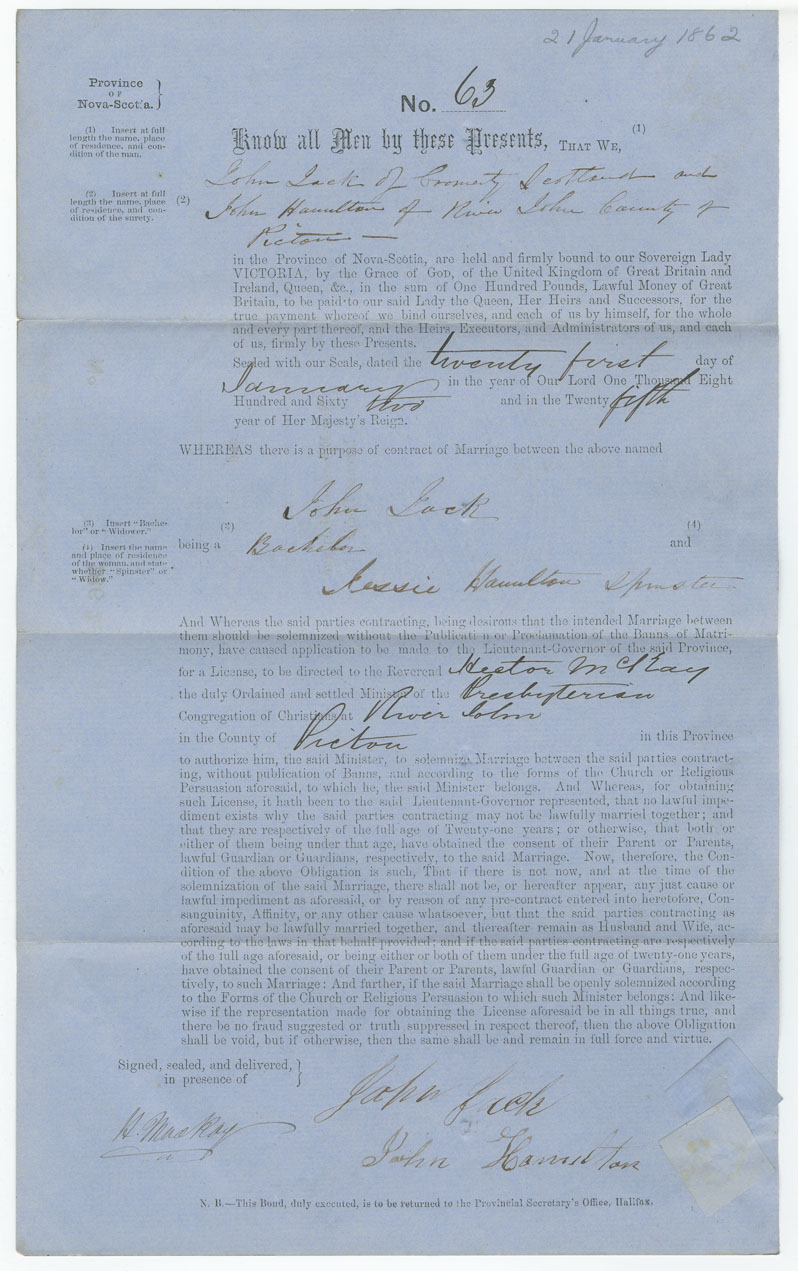 21 January 1862
Province
OF
Nova-Scotia.
No. 63
(1) Insert at full
length the name, place
of residence, and con-
dition of the man.
Know all Men by these Presents, THAT WE, (1)
(2) Insert at full
length the name, place
of residence, and con-
dition of the surety.
John Jack of Cromerty Scotland and
(2) John Hamilton of River John County of
Pictou —
in the Province of Nova-Scotia, are held and firmly bound to our Sovereign Lady
VICTORIA, by the Grace of GOD, of the United Kingdom of Great Britain and
Ireland, Queen, &c., in the sum of One Hundred Pounds, Lawful Money of Great
Britain, to be paid to our said Lady the Queen, Her Heirs and Successors, for the
true payment whereof we bind ourselves, and each of us by himself, for the whole
and every part thereof, and the Heirs, Executors, and Administrators of us, and each
of us, firmly by these Presents.
Sealed with our Seals, dated the twenty first day of
January in the year of Our Lord One Thousand Eight
Hundred and Sixty two and in the Twenty fifth
year of Her Majesty's Reign.
WHEREAS there is a purpose of contract of Marriage between the above named
John Jack
(3) Insert "Bache-
lor" or "Widower."
(4) Insert the name
and place of residence
of the woman, and state
whether "Spinster" or
"Widow."
being a (3) Bachelor and (4)
Jessie Hamilton Spinster
And Whereas the said parties contracting, being desirous that the intended Marriage between
them should be solemnized without the Publication or Proclamation of the Banns of Matri-
mony, have caused application to be made to the Lieutenant-Governor of the said Province,
for a License, to be directed to the Reverend Hector McKay
the duly Ordained and settled Minister of the Presbyterian
Congregation of Christians at River John
in the County of Pictou in this Province
to authorize him, the said Minister, to solemnize Marriage between the said parties contract-
ing, without publication of Banns, and according to the forms of the Church or Religious
Persuasion aforesaid, to which he, the said Minister belongs. And Whereas, for obtaining
such License, it hath been to the said Lieutenant-Governor represented, that no lawful impe-
diment exists why the said parties contracting may not be lawfully married together; and
that they are respectively of the full age of Twenty-one years; or otherwise, that both or
either of them being under that age, have obtained the consent of their Parent or Parents,
lawful Guardian or Guardians, respectively, to the said Marriage. Now, therefore, the Con-
dition of the above Obligation is such, That if there is not now, and at the time of the
solemnization of the said Marriage, there shall not be, or hereafter appear, any just cause or
lawful impediment as aforesaid, or by reason of any pre-contract entered into heretofore, Con-
sanguinity, Affinity, or any other cause whatsoever, but that the said parties contracting as
aforesaid may be lawfully married together, and thereafter remain as Husband and Wife, ac-
cording to the laws in that behalf provided; and if the said parties contracting are respectively
of the full age aforesaid, or being either or both of them under the full age of twenty-one years,
have obtained the consent of their Parent or Parents, lawful Guardian or Guardians, respec-
tively, to such Marriage: And further, if the said Marriage shall be openly solemnized according
to the Forms of the Church or Religious Persuasion to which such Minister belongs: And like-
wise if the representation made for obtaining the License aforesaid be in all things true, and
there be no fraud suggested or truth suppressed in respect thereof, then the above Obligation
shall be void, but if otherwise, then the same shall be and remain in full force and virtue.
Signed, sealed, and delivered,
in presence of
John Jack
H. MacKay
John Hamilton
N. B.—This Bond, duly executed, is to be returned to the Provincial Secretary's Office, Halifax.